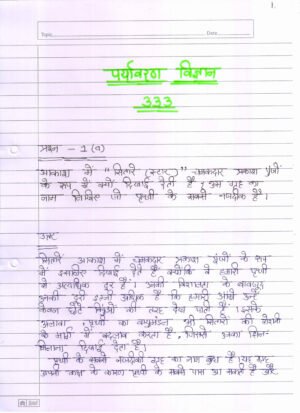 1.
Topic
Date
पर्यावरण विज्ञान
333
प्रश्न - 1 (a)
आकाश में "सितारे (स्टार)" चमकदार प्रकाश पुंजों
के रूप में क्यों दिखाई देती हैं, उस ग्रह का
नाम लिखिए जो पृथ्वी के सबसे नजदीक है।
उत्तर
सितारे आकाश में चमकदार प्रकाश पुंजों के रूप
में इसलिए दिखाई देते हैं क्योंकि वे हमारी पृथ्वी
से अत्यधिक दूर हैं। उनकी विशालता के बावजूद
उनकी दूरी इतनी अधिक है कि हमारी आंखें उन्हें
केवल छोटे बिंदुओं की तरह देख पाती हैं। इसके
अलावा, पृथ्वी का वायुमंडल भी सितारों की रोशनी
के मार्ग में बदलाव करता है, जिससे उनका
दिखाई देता है।
पृथ्वी के सबसे नजदीकी ग्रह का नाम बुध है। यह ग्रह
अपनी कक्षा के कारण पृथ्वी के सबसे पास आ सकती है और